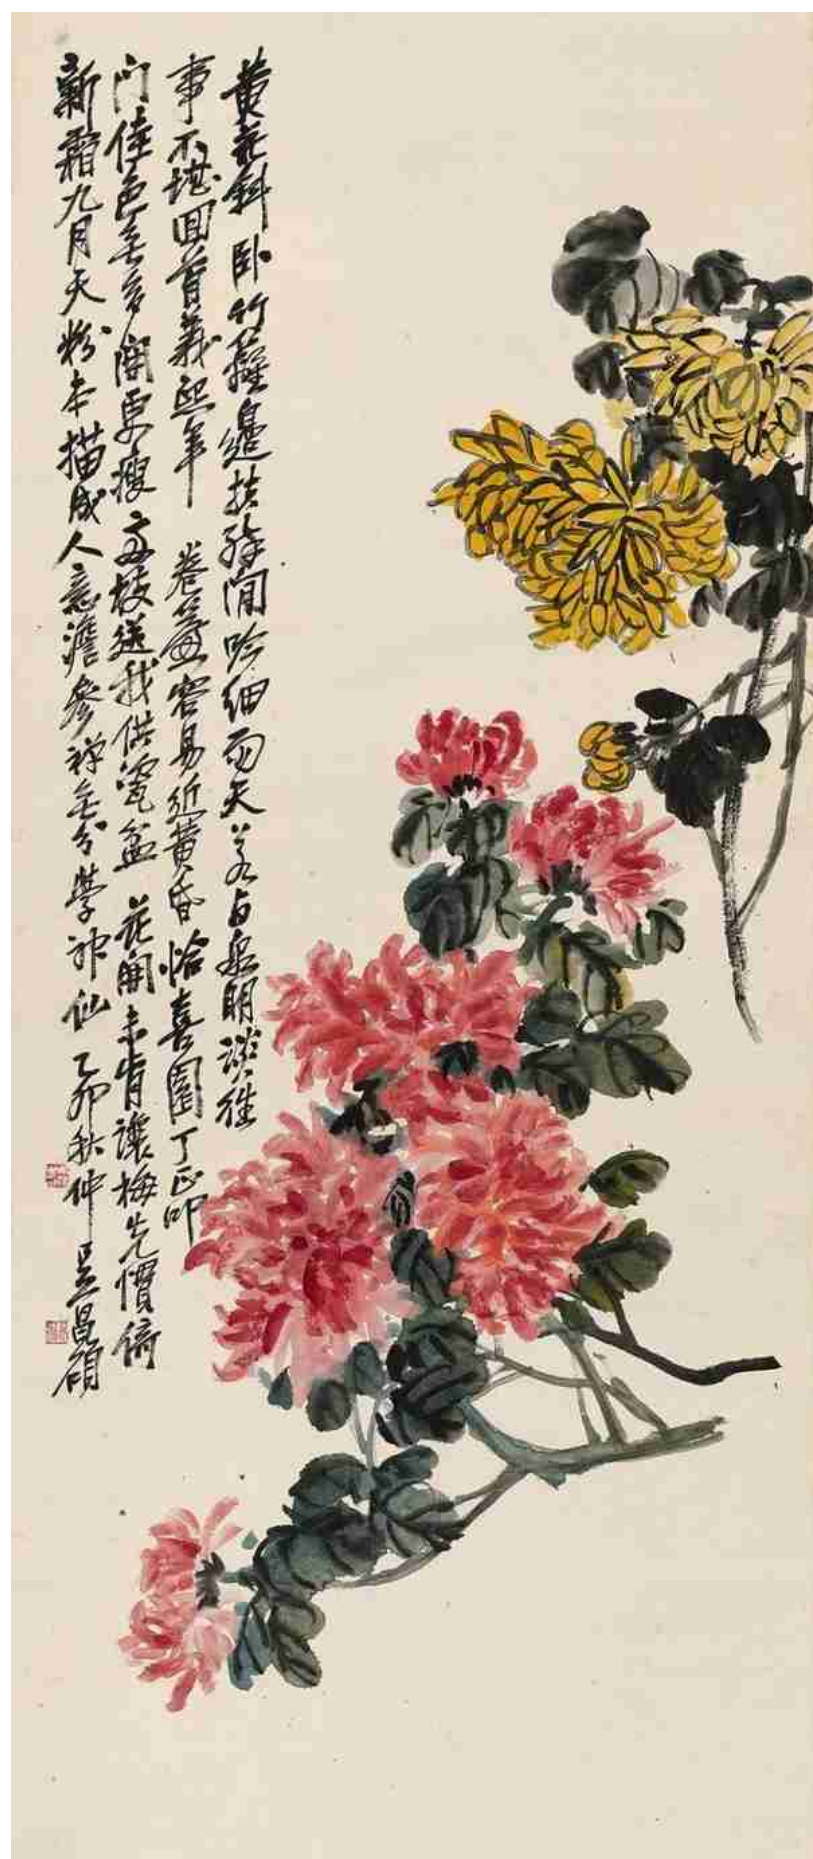 黄花斜卧竹籬邊扶醉閒吟細雨天若与泉明談往
事不堪回首義熙年 卷簾容易近黄昏恰喜園丁正叩
門佳色無多開更瘦高枝送我供瓷盆 花開未肯讓梅先慣倚
新霜九月天粉本描成人意澹參禪無分學神仙 乙卯秋仲 吴昌碩